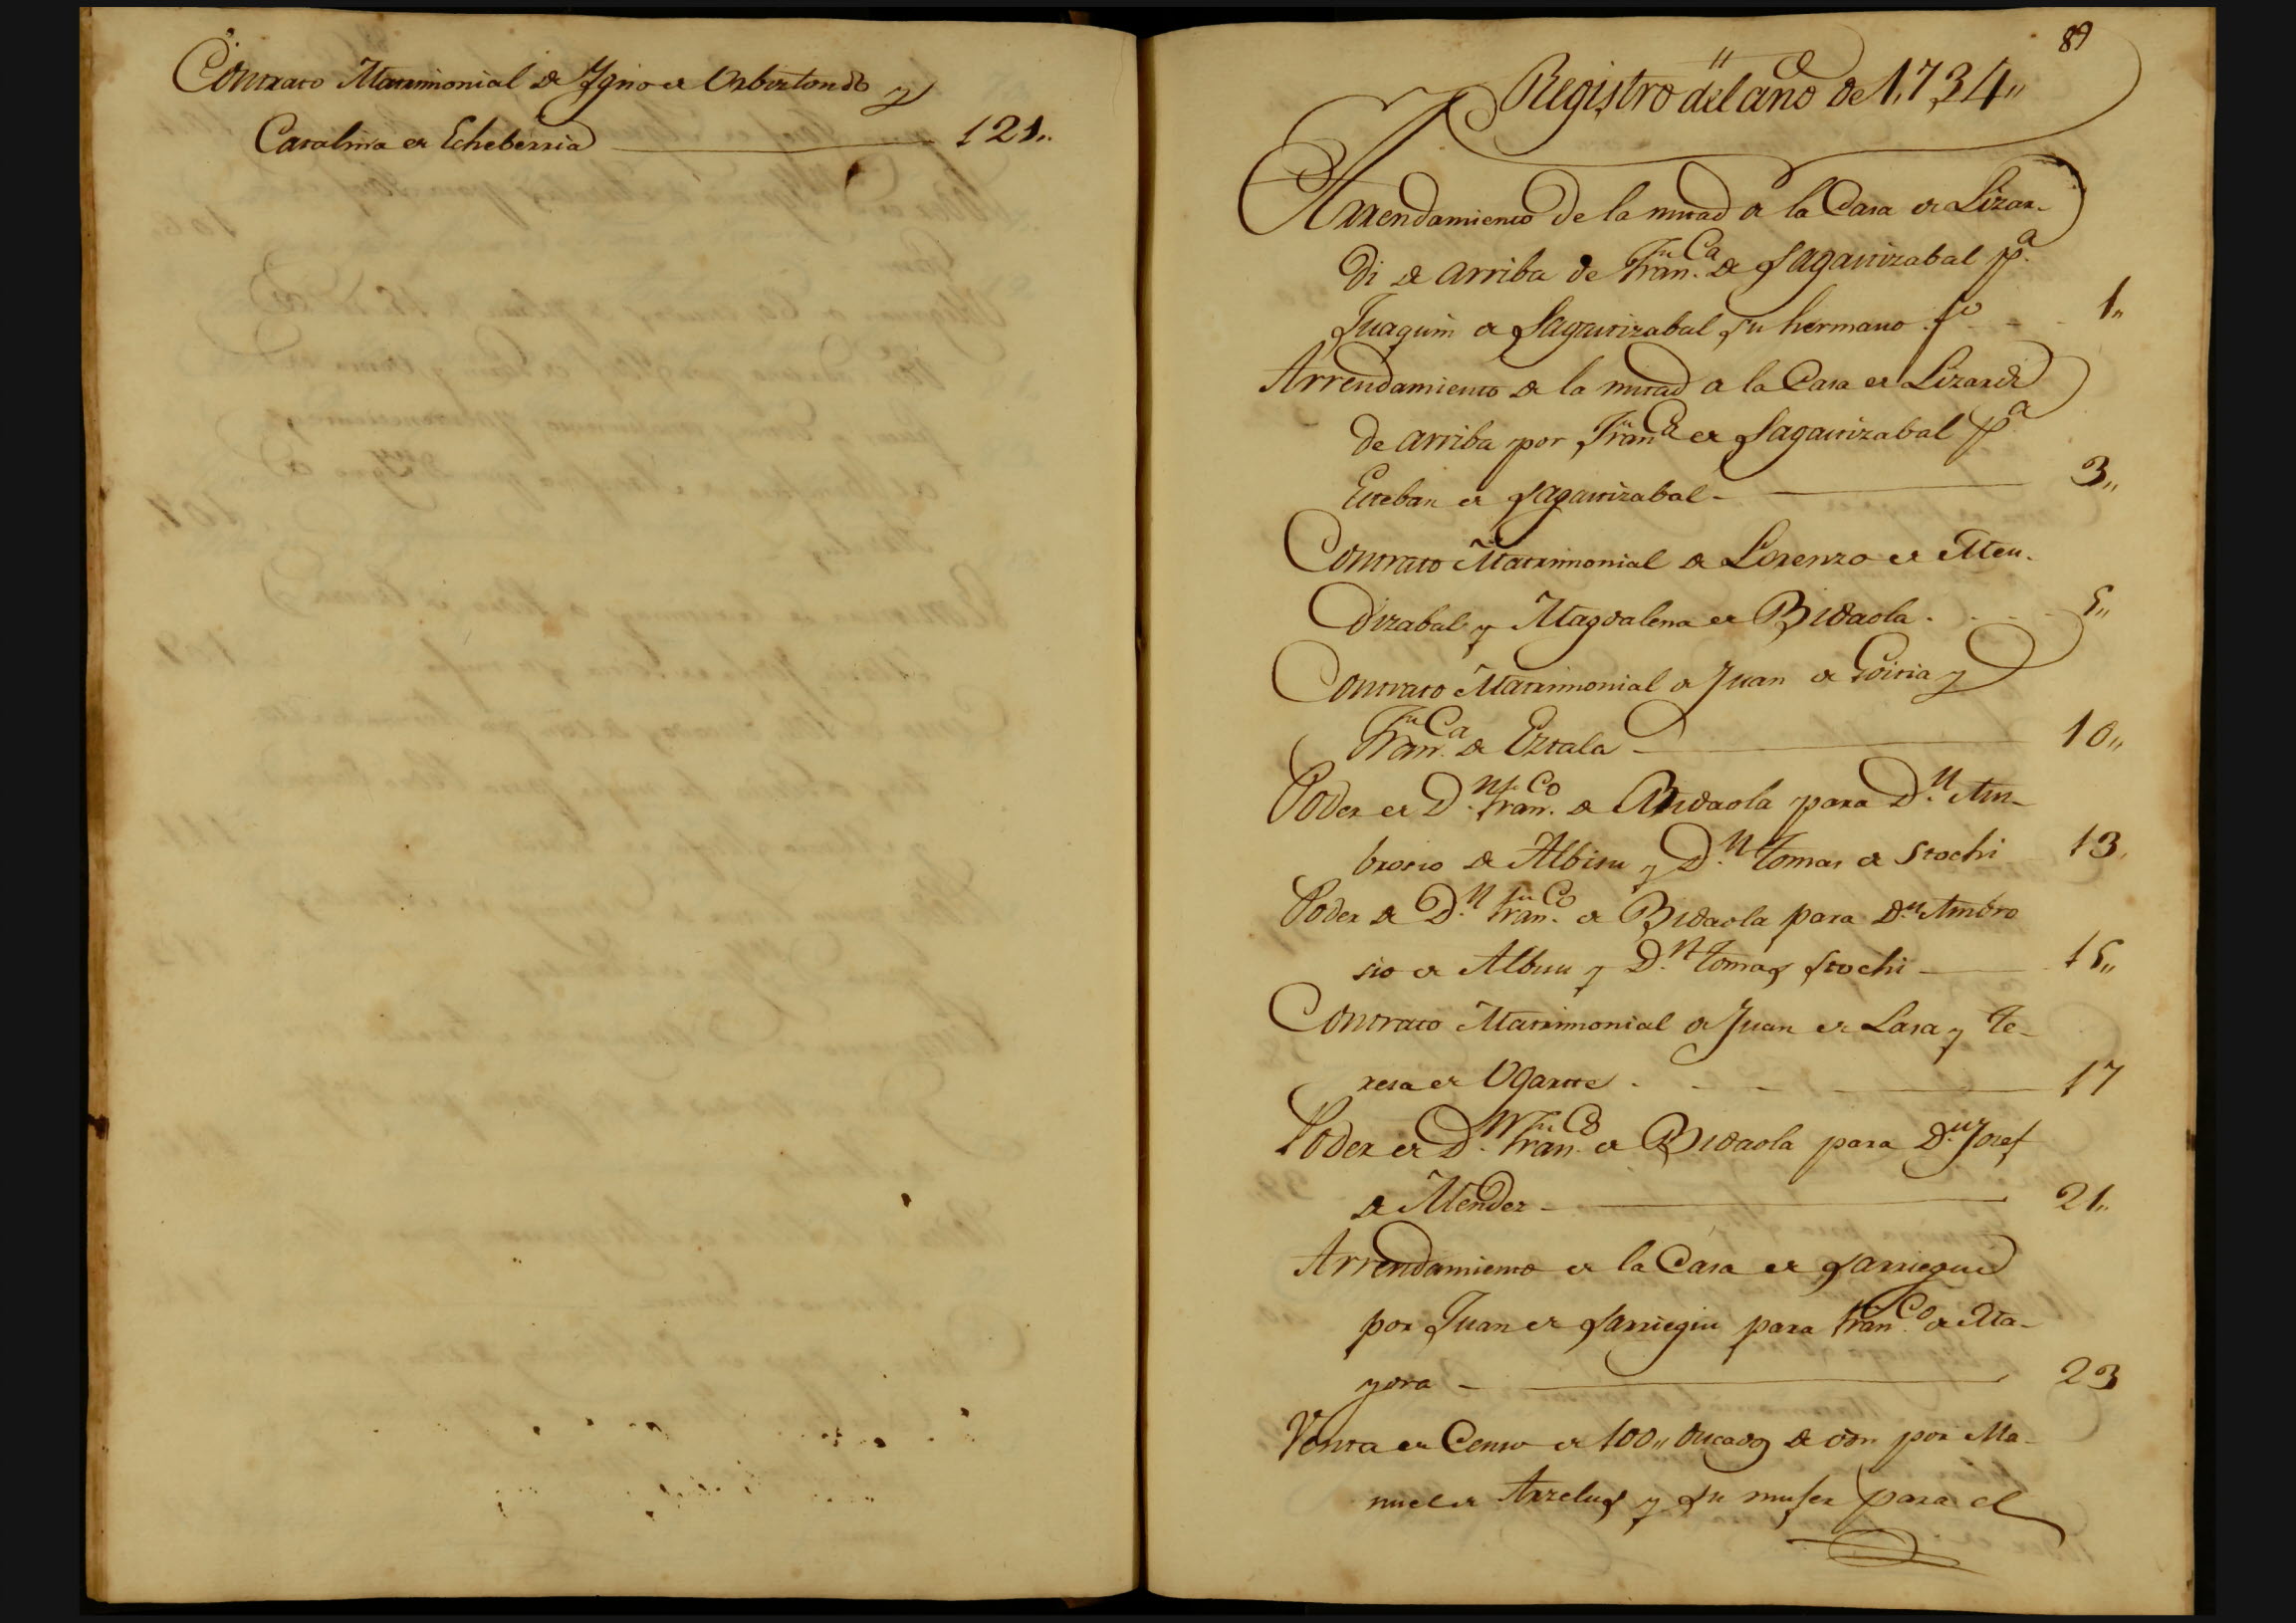 Contrato Matrimonial de Ygno de Urbiztondo y
Catalina de Echeberria 121„
89
Registro del año de 1,734„
Arrendamiento de la mitad de la Casa de Lizar-
di de arriba de Franca de Sagastizabal pa
Juaquin de Sagastizabal su hermano fo 1„
Arrendamiento de la mitad de la Casa de Lizardi
de arriba por Franca de Sagastizabal pa
Esteban de Sagastizabal 3„
Contrato Matrimonial de Lorenzo de Men-
dizabal y Magdalena de Bidaola 5„
Contrato Matrimonial de Juan de Goiria y
Franca de Eztala 10„
Poder de Dn Franco de Bidaola para Dn Am-
brosio de Albisu y Dn Tomas de Stochi 13„
Poder de Dn Franco de Bidaola para Dn Ambro
sio de Albisu y Dn Tomas Stochi 15„
Contrato Matrimonial de Juan de Lasa y Te-
resa de Ugarte 17
Poder de Dn Franco de Bidaola para Dn Josef
de Mendez 21„
Arrendamiento de la Casa de Sarriegui
por Juan de Sarriegui para Franco de Ma-
yora 23
Venta de Censo de 100„ ducados de por Ma-
nuel de Arzelus y su muger para el